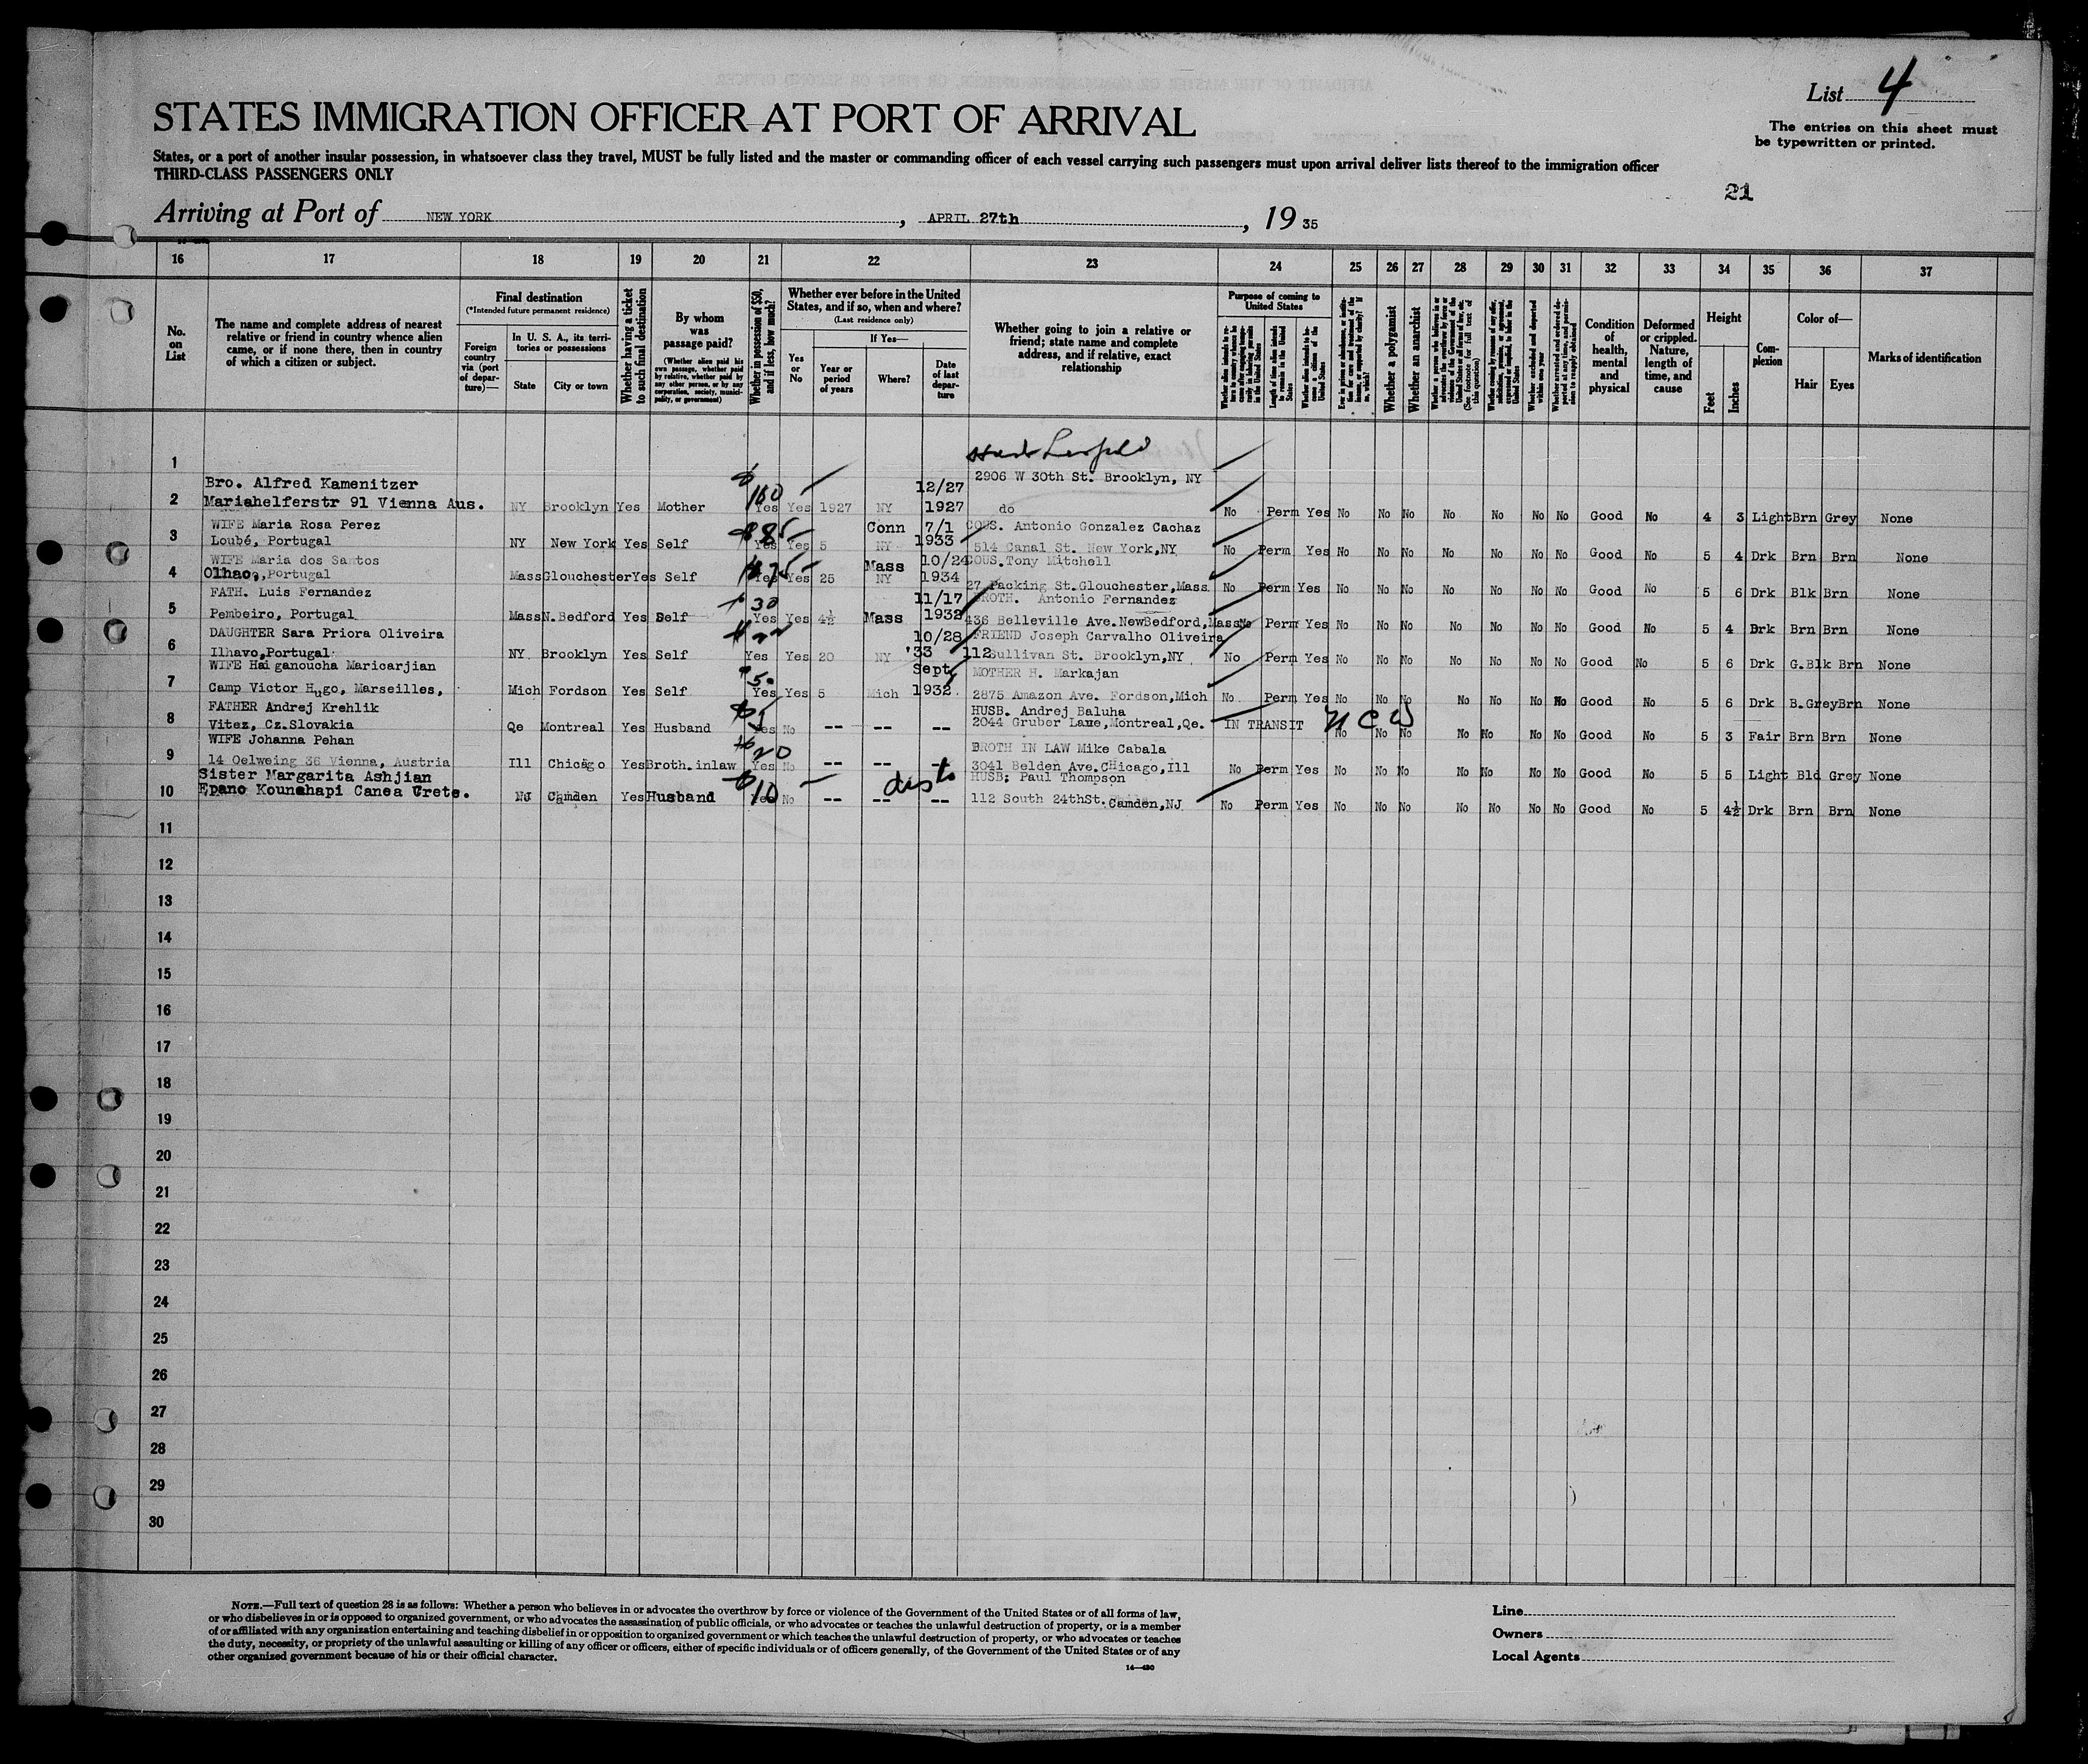 List 4
The entries on this sheet must
be typewritten or printed.
STATES IMMIGRATION OFFICER AT PORT OF ARRIVAL
States, or a port of another insular possession, in whatsoever class they travel, MUST be fully listed and the master or commanding officer of each vessel carrying such passengers must upon arrival deliver lists thereof to the immigration officer
THIRD-CLASS PASSENGERS ONLY
21
Arriving at Port of NEW YORK, APRIL 27th, 1935
16 17 18 19 20 21 22 23 24 25 26 27 28 29 30 31 32 33 34 35 36 37
No.
on
List
The name and complete address of nearest
relative or friend in country whence alien
came, or if none there, then in country
of which a citizen or subject.
Final destination
(*Intended future permanent residence)
Foreign
country
via (port
of depar-
ture)—
In U. S. A., its terri-
tories or possessions
State City or town
Whether having a ticket
to such final destination
By whom
was
passage paid?
(Whether alien paid his
own passage, whether paid
by relative, whether paid by
any other person, or by any
corporation, society, munici-
pality, or government)
Whether in possession of $50,
and if less, how much?
Whether ever before in the United
States, and if so, when and where?
(Last residence only)
Yes
or
No
If Yes—
Year or
period
of years
Where?
Date
of last
depar-
ture
Whether going to join a relative or
friend; state name and complete
address, and if relative, exact
relationship
Purpose of coming to
United States
Whether a polygamist
Whether an anarchist
Condition
of
health,
mental
and
physical
Deformed
or crippled.
Nature,
length of
time, and
cause
Height
Feet Inches
Com-
plexion
Color of—
Hair Eyes
Marks of identification
1
2906 W 30th St. Brooklyn, NY
Bro. Alfred Kamenitzer
12/27
2 Mariahelferstr 91 Vienna Aus. NY Brooklyn Yes Mother 160 Yes Yes 1927 NY 1927 do No Perm Yes No No No No No No No Good No 4 3 Light Brn Grey None
WIFE Maria Rosa Perez Conn 7/1 COUS. Antonio Gonzalez Cachaz
3 Loubé, Portugal NY New York Yes Self 85 Yes Yes 5 NY 1933 514 Canal St. New York,NY No Perm Yes No No No No No No No Good No 5 4 Drk Brn Brn None
WIFE Maria dos Santos Mass 10/24 COUS. Tony Mitchell
4 Olhao, Portugal Mass Glouchester Yes Self 75 Yes Yes 25 NY 1934 27 Packing St. Glouchester, Mass No Perm Yes No No No No No No No Good No 5 6 Drk Blk Brn None
FATH. Luis Fernandez 11/17 BROTH. Antonio Fernandez
5 Pembeiro, Portugal Mass N.Bedford Yes Self 30 Yes Yes 4½ Mass 1932 436 Belleville Ave. NewBedford, Mass No Perm Yes No No No No No No No Good No 5 4 Drk Brn Brn None
DAUGHTER Sara Priora Oliveira 10/28 FRIEND Joseph Carvalho Oliveira
6 Ilhavo, Portugal NY Brooklyn Yes Self Yes Yes 20 NY '33 112 Sullivan St. Brooklyn,NY No Perm Yes No No No No No No No Good No 5 6 Drk G.Blk Brn None
WIFE Haiganoucha Maricarjian Sept MOTHER H. Markajan
7 Camp Victor Hugo, Marseilles, Mich Fordson Yes Self 50 Yes Yes 5 Mich 1932 2875 Amazon Ave. Fordson,Mich No Perm Yes No No No No No No No Good No 5 6 Drk B.Grey Brn None
FATHER Andrej Krehlik HUSB. Andrej Baluha
8 Vitez, Cz.Slovakia Qe Montreal Yes Husband $5 Yes No -- -- -- 2044 Gruber Lane, Montreal, Qe. IN TRANSIT No No No No No No No Good No 5 3 Fair Brn Brn None
WIFE Johanna Pehan BROTH IN LAW Mike Cabala
9 14 Oelweing 36 Vienna, Austria Ill Chicago Yes Broth.inlaw $20 Yes No -- -- -- 3041 Belden Ave. Chicago, Ill No Perm Yes No No No No No No No Good No 5 5 Light Bld Grey None
Sister Margarita Ashjian HUSB; Paul Thompson
10 Epano Kounahapi Canea Crete. NJ Camden Yes Husband $10 Yes No -- -- -- 112 South 24thSt. Camden,NJ No Perm Yes No No No No No No No Good No 5 4½ Drk Brn Brn None
11
12
13
14
15
16
17
18
19
20
21
22
23
24
25
26
27
28
29
30
NOTE.—Full text of question 28 is as follows: Whether a person who believes in or advocates the overthrow by force or violence of the Government of the United States or of all forms of law,
or who disbelieves in or is opposed to organized government, or who advocates the assassination of public officials, or who advocates or teaches the unlawful destruction of property, or is a member
of or affiliated with any organization entertaining and teaching disbelief in or opposition to organized government or which teaches the unlawful destruction of property, or who advocates or teaches
the duty, necessity, or propriety of the unlawful assaulting or killing of any officer or officers, either of specific individuals or of officers generally, of the Government of the United States or of any
other organized government because of his or their official character.
14—430
Line
Owners
Local Agents